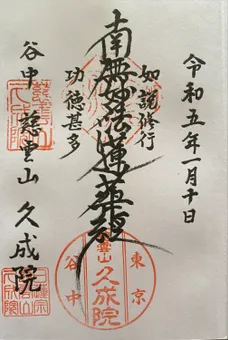 令和五年一月十日
如説修行
南無妙法蓮華經
功徳甚多
谷中 慈雲山 久成院
東京
雲山
久成院
谷中